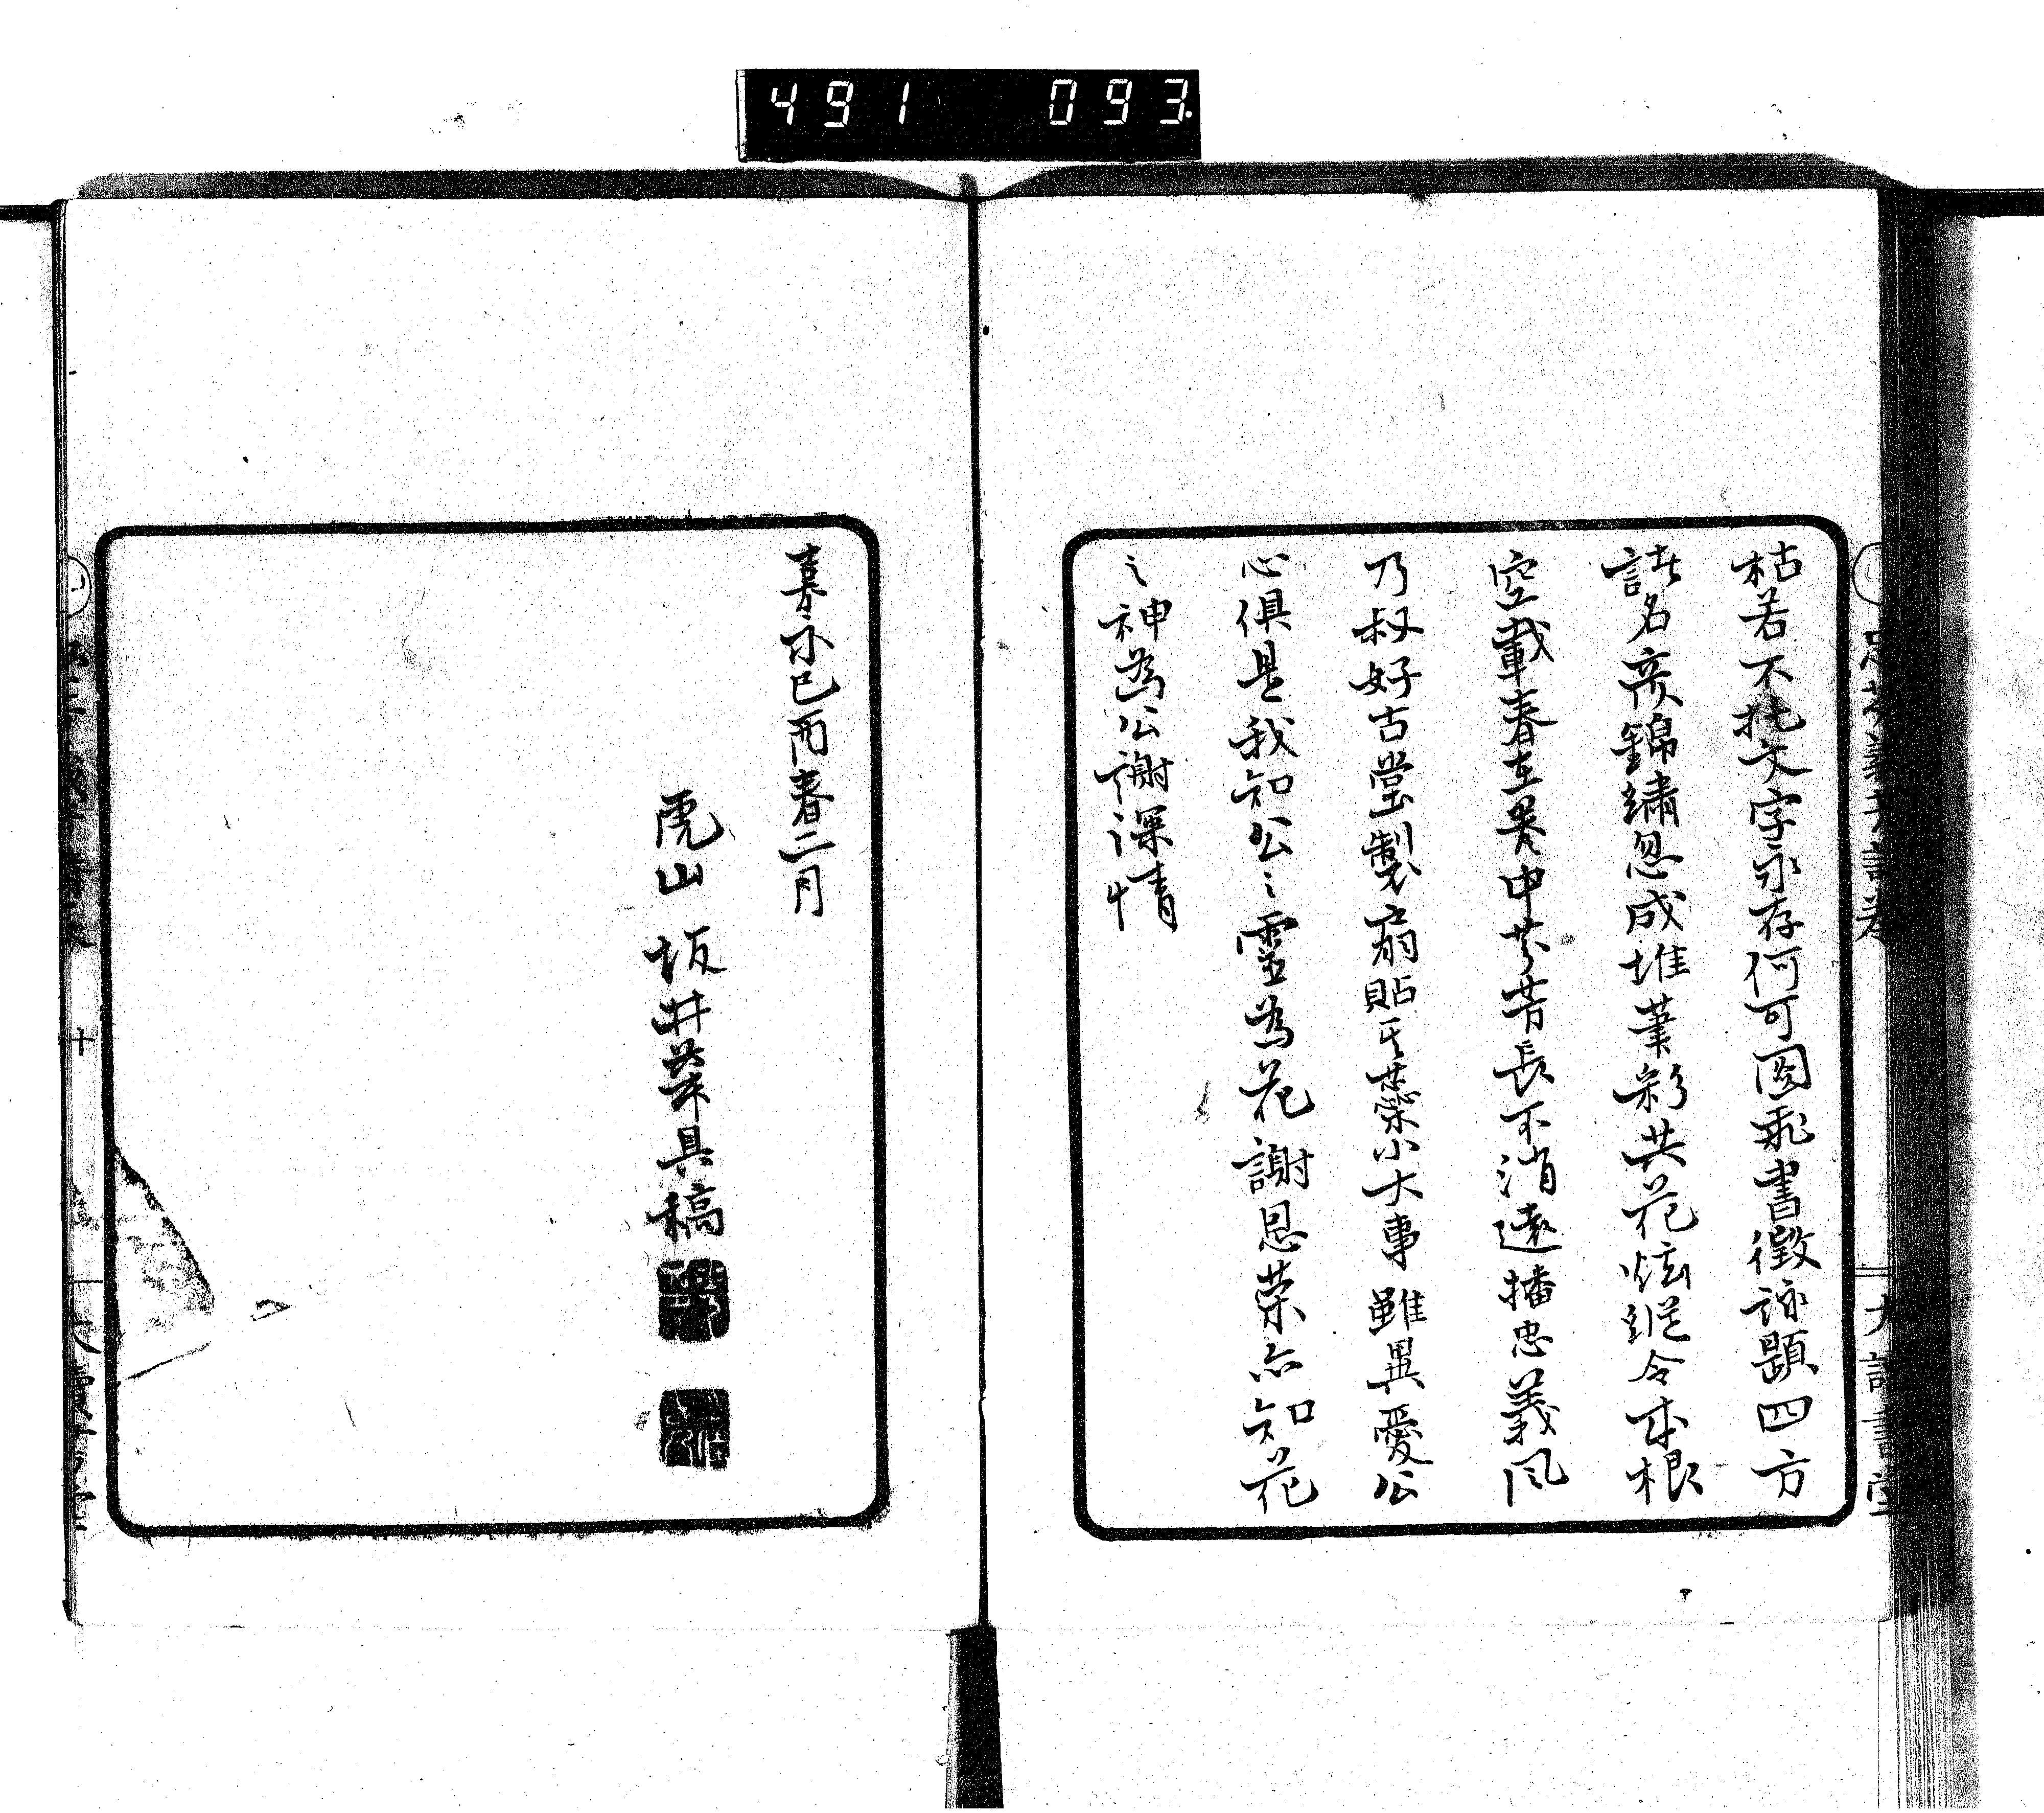 491 093
枯若不托文字永存何可図飛書徴詠題四方
諸名彦錦繍忽成堆筆彩共花炫縦令本根
空載春在巻中芬芳長不消遠播忠義風
乃叔好古堂製扇貼其蘂小大事雖異愛公
心倶是我知公之霊為花謝恩栄亦知花
之神為公謝深情
嘉永己酉春二月
虎山坂井華具稿
十